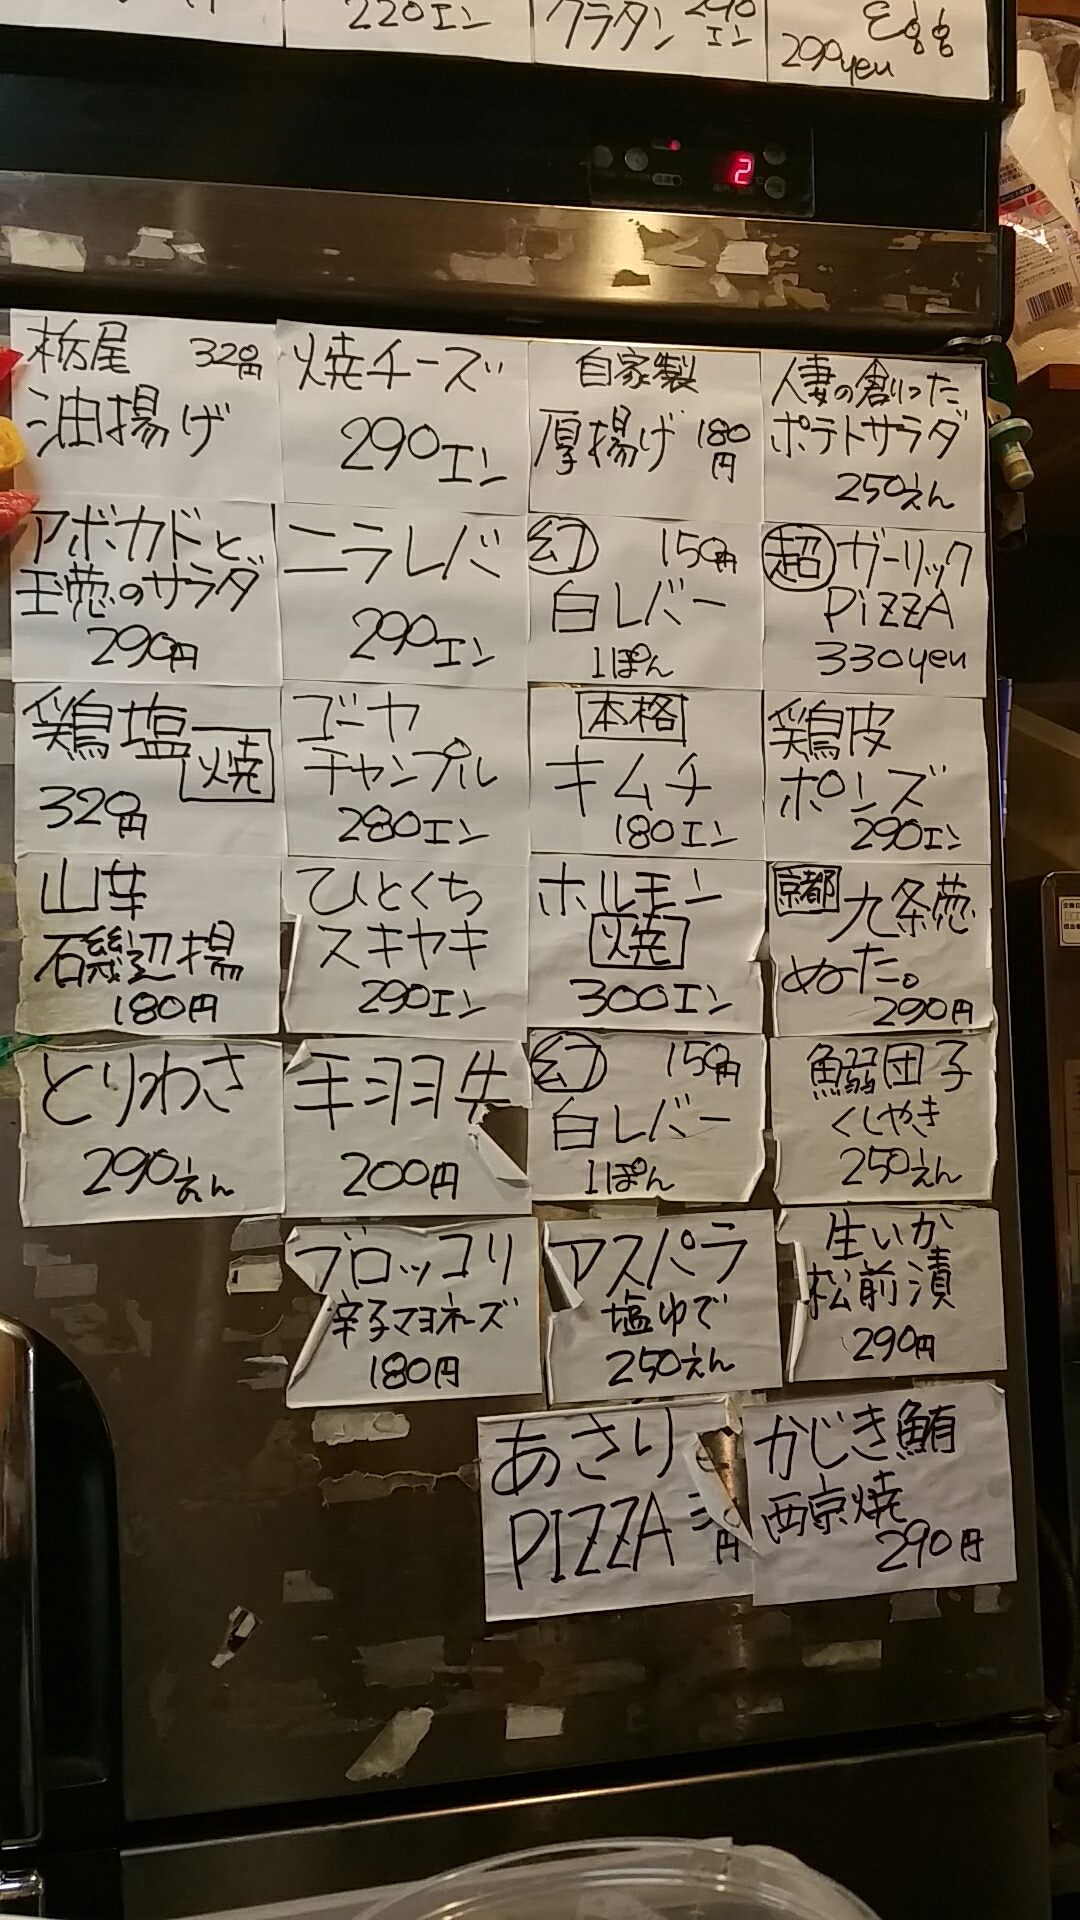 220エン
グラタン 290エン
Egg
290yen
2
栃尾 320円
油揚げ
焼チーズ
290エン
自家製
厚揚げ 180円
人妻の創った
ポテトサラダ
250えん
アボカドと
玉葱のサラダ
290円
ニラレバ
290エン
幻 150円
白レバー
1ぽん
超 ガーリック
PiZZA
330yen
鶏塩
焼
320円
ゴーヤ
チャンプル
280エン
本格
キムチ
180エン
鶏皮
ポンズ
290エン
山芋
磯辺揚
180円
ひとくち
スキヤキ
290エン
ホルモン
焼
300エン
京都 九条葱
ぬた。
290円
とりわさ
290えん
手羽先
200円
幻 150円
白レバー
1ぽん
鰯団子
くしやき
250えん
ブロッコリ
辛子マヨネーズ
180円
アスパラ
塩ゆで
250えん
生いか
松前漬
290円
あさり
PIZZA
円
かじき鮪
西京焼
290円